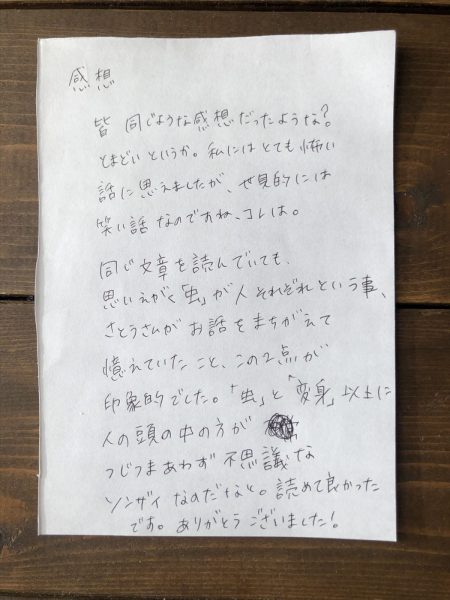 感想
皆 同じような感想だったような?
とまどいというか。私にはとても怖い
話に思えましたが、ぜ見的には
笑い話なのですね、コレは。
同じ文章を読んでいても、
思いえがく「虫」が人それぞれという事、
さとうさんがお話をまちがえて
憶えていたこと、この2点が
印象的でした。「虫」と「変身」以上に
人の頭の中の方が
つじつまあわず不思議な
ソンザイなのだなと。読めて良かった
です。ありがとうございました!